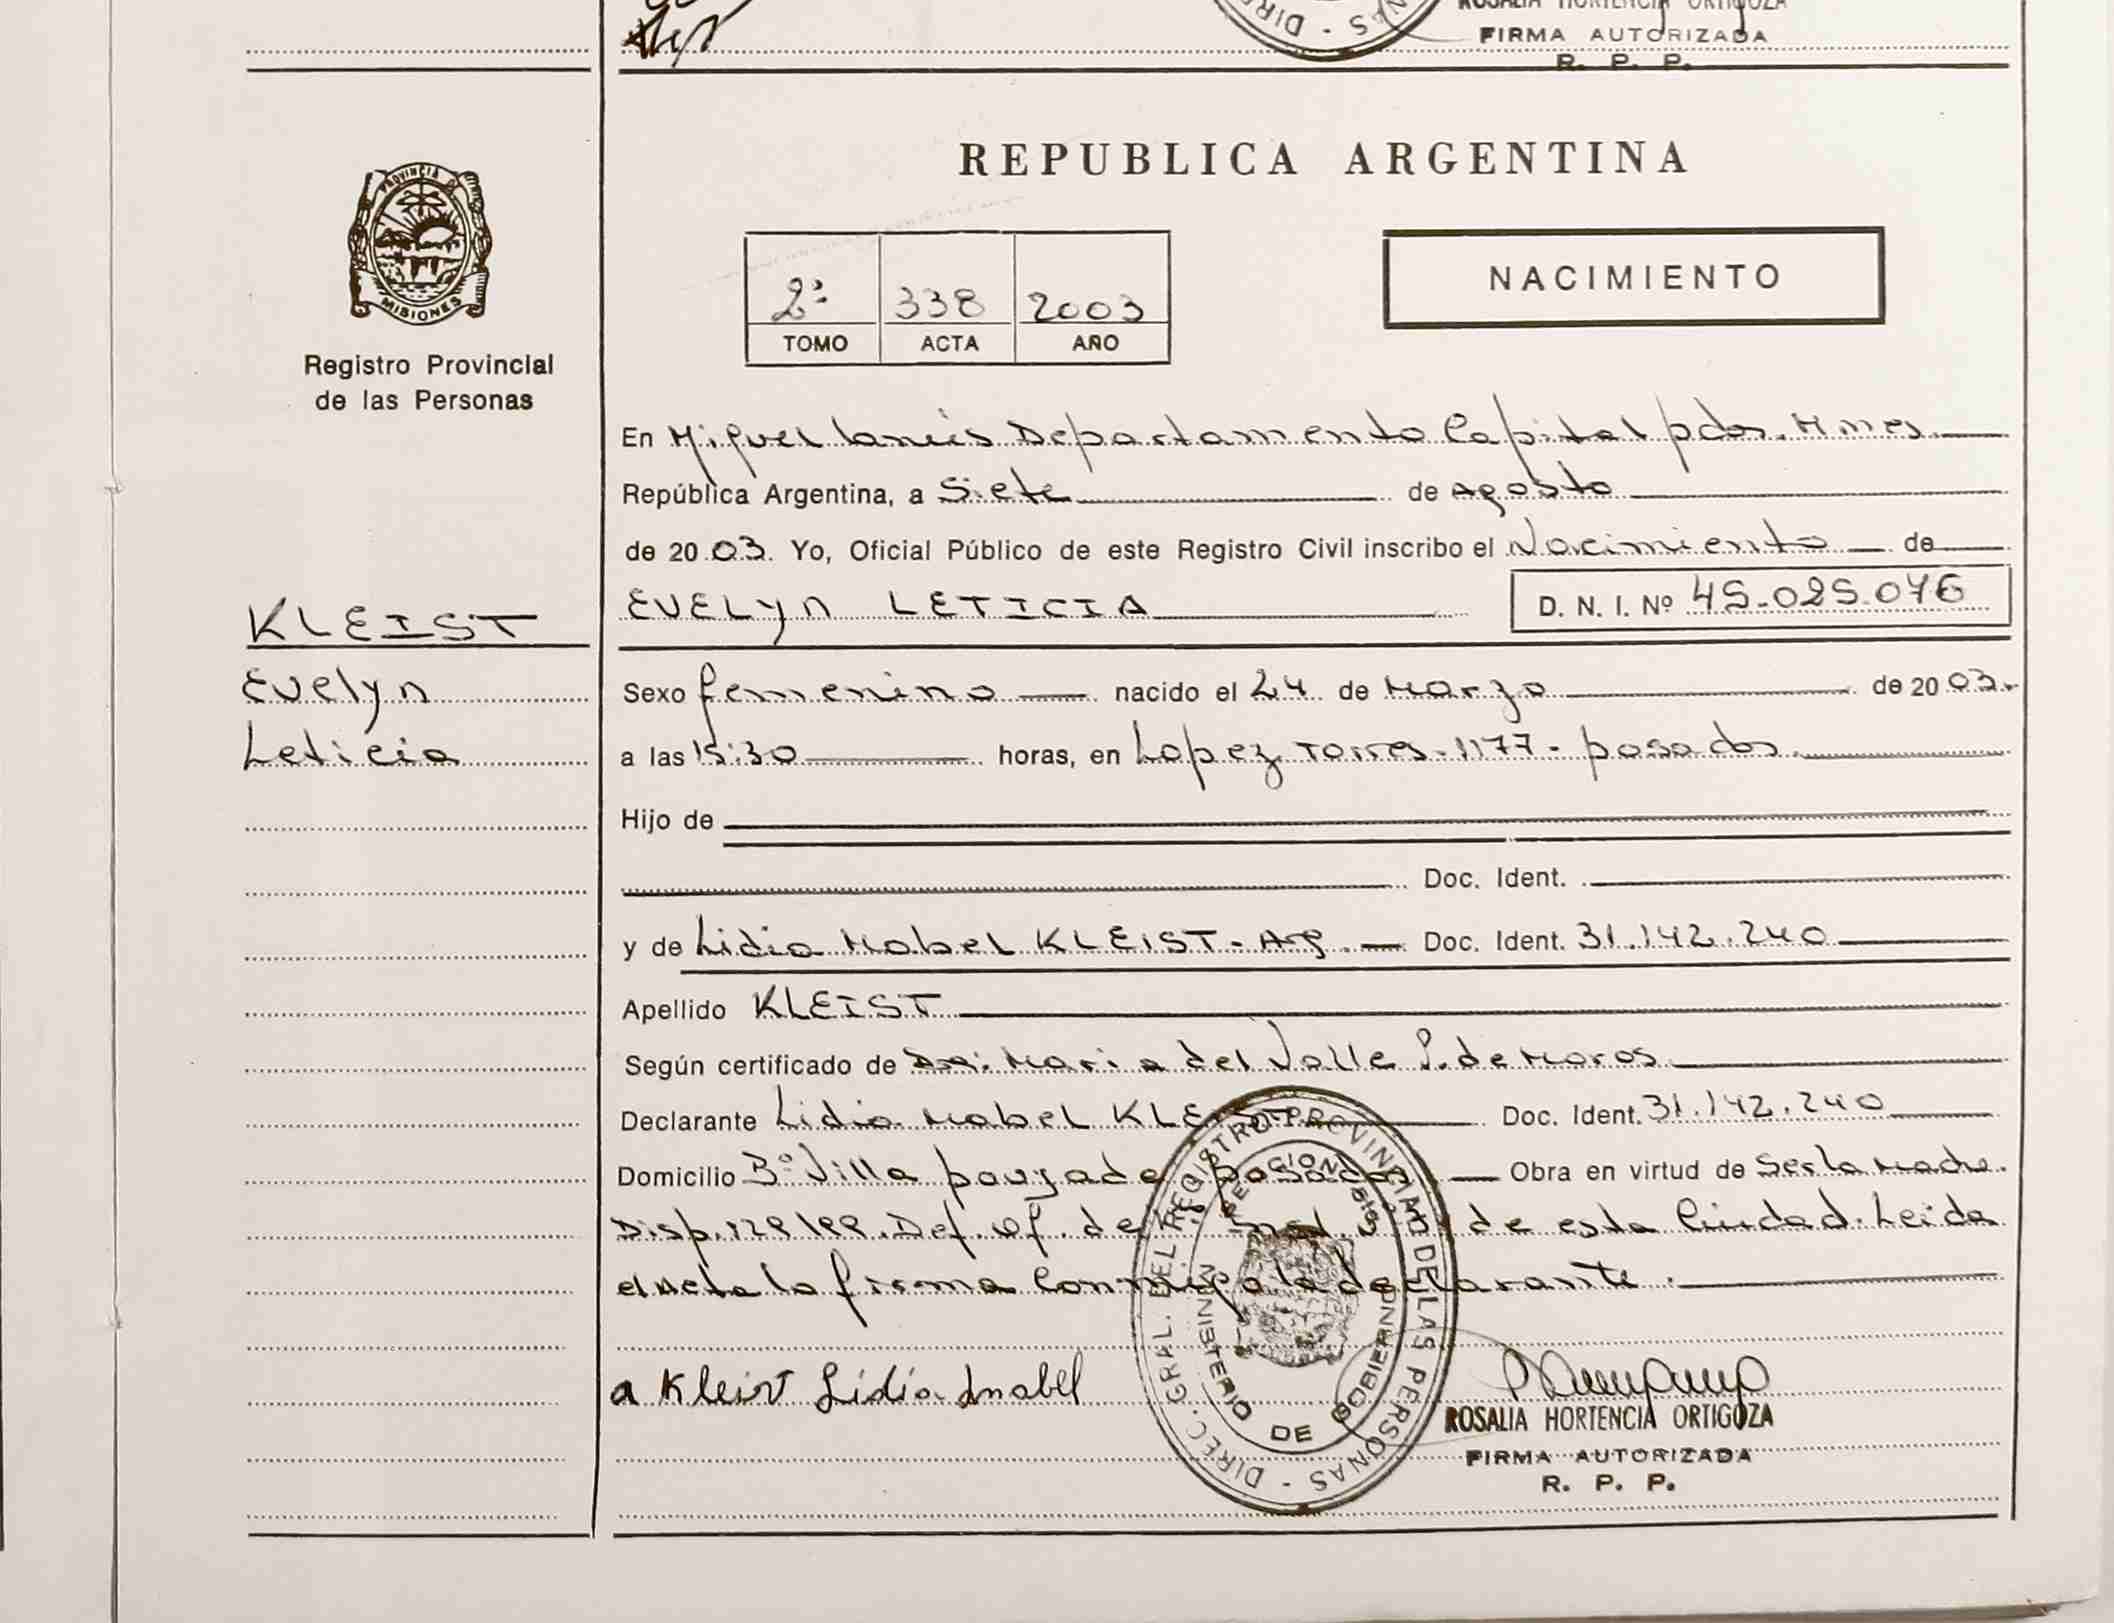 ROSALIA HORTENCIA ORTIGOZA
FIRMA AUTORIZADA
R. P. P.
PROVINCIA DE
MISIONES
Registro Provincial
de las Personas
REPUBLICA ARGENTINA
2º 338 2003
TOMO ACTA AÑO
NACIMIENTO
En Miguel Lanús Departamento Capital pdas. Mnes.
República Argentina, a Siete de Agosto
de 2003. Yo, Oficial Público de este Registro Civil inscribo el Nacimiento de
EVELYN LETICIA D. N. I. Nº 45.025.076
KLEIST
Evelyn
Leticia
Sexo femenino nacido el 24 de Marzo de 2003.
a las 15:30 horas, en Lopez Torres-1177- posadas
Hijo de
Doc. Ident.
y de Lidia Mabel KLEIST- Arg. Doc. Ident. 31.142.240
Apellido KLEIST
Según certificado de Dra. Maria del Valle P. de Moros
Declarante Lidia Mabel KLEIST Doc. Ident. 31.142.240
Domicilio Bº Villa pouyade posadas Obra en virtud de Ser la Madre.
Disp. 129/99. Def. Of. de de esta Ciudad. Leida
el Acta la firma Conmigo la declarante.
a Kleist Lidia Mabel
DIREC. GRAL. DEL REGISTRO PROVINCIAL DE LAS PERSONAS
MINISTERIO DE GOBIERNO
ROSALIA HORTENCIA ORTIGOZA
FIRMA AUTORIZADA
R. P. P.